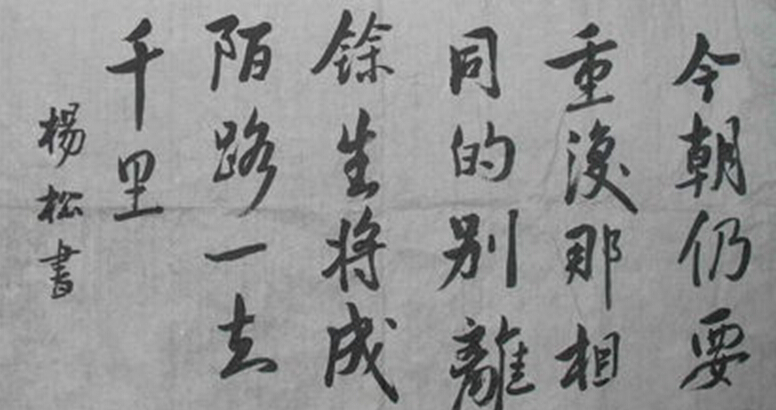 今朝仍要
重復那相
同的別離
餘生將成
陌路一去
千里
楊松書